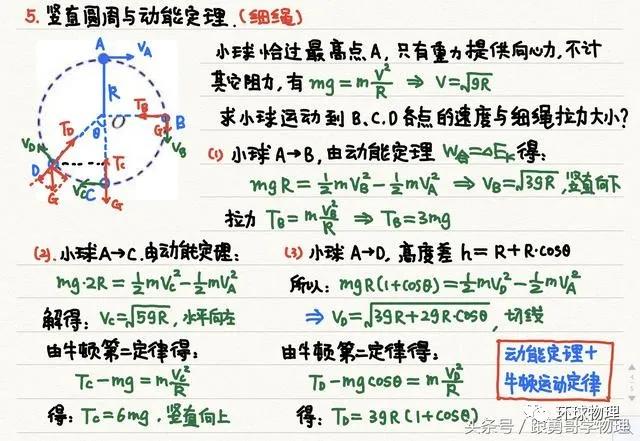 5. 竖直圆周与动能定理.(细绳)
A
V_A
R
T_B
B
G
V_B
O
θ
T_D
V_D
D
G
T_C
V_C
C
G
小球恰过最高点A,只有重力提供向心力,不计
其它阻力,有 mg=m\frac{V^2}{R} ⇒ V=\sqrt{gR}
求小球运动到B、C、D各点的速度与细绳拉力大小?
(1) 小球A→B,由动能定理 W_合=△E_k得:
mgR=\frac{1}{2}mV_B^2-\frac{1}{2}mV_A^2 ⇒ V_B=\sqrt{3gR},竖直向下
拉力 T_B=m\frac{V_B^2}{R} ⇒ T_B=3mg
(2).小球A→C.由动能定理:
mg·2R=\frac{1}{2}mV_C^2-\frac{1}{2}mV_A^2
解得: V_C=\sqrt{5gR},水平向左
由牛顿第二定律得:
T_C-mg=m\frac{V_C^2}{R}
得: T_C=6mg.竖直向上
(3) 小球A→D,高度差 h=R+R·cosθ
所以: mgR(1+cosθ)=\frac{1}{2}mV_D^2-\frac{1}{2}mV_A^2
⇒ V_D=\sqrt{3gR+2gR·cosθ},切线
由牛顿第二定律得:
T_D-mgcosθ=m\frac{V_D^2}{R}
得: T_D=3gR(1+cosθ)
动能定理+
牛顿运动定律
环球物理
头条号/跟勇哥学物理